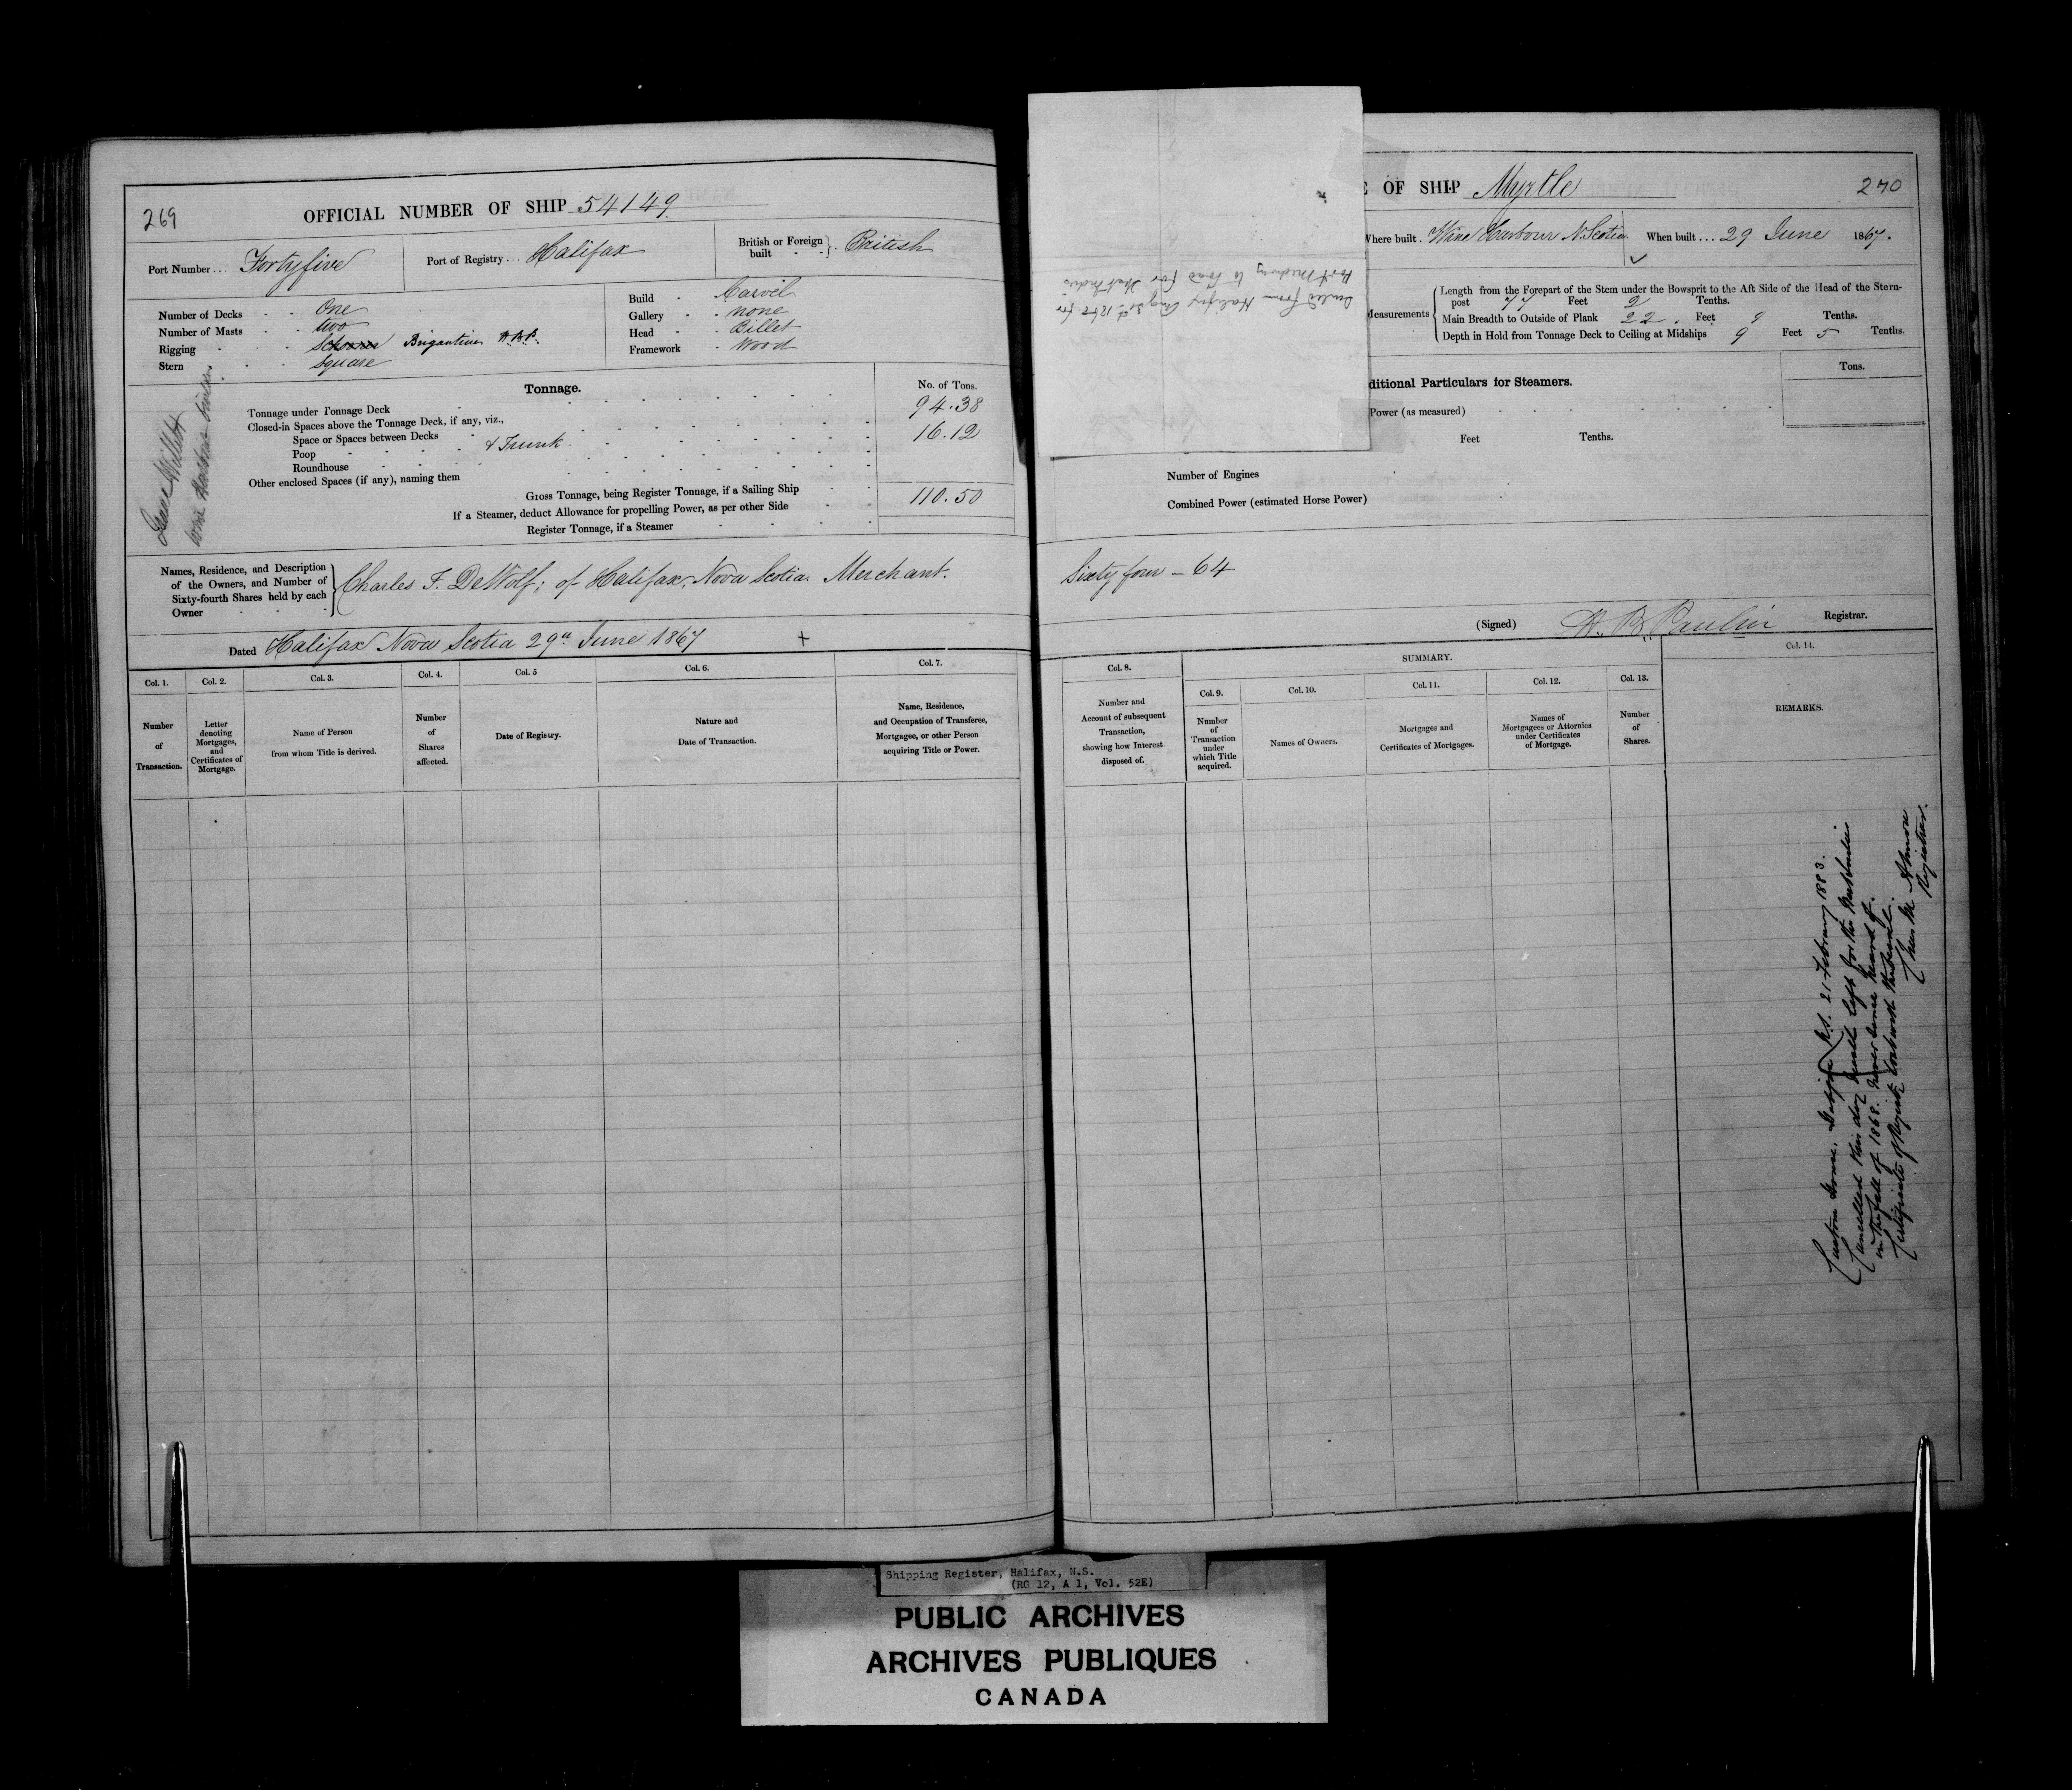 269
OFFICIAL NUMBER OF SHIP 54149
Port Number... Fortyfive
Port of Registry... Halifax
British or Foreign built } British
Number of Decks One
Number of Masts two
Rigging Schooner Brigantine H.B.P.
Stern Square
Build Carvel
Gallery none
Head Billet
Framework Wood
Tonnage.
No. of Tons.
Tonnage under Tonnage Deck 94.38
Closed-in Spaces above the Tonnage Deck, if any, viz.,
Space or Spaces between Decks 16.12
Poop & Trunk
Roundhouse
Other enclosed Spaces (if any), naming them
Gross Tonnage, being Register Tonnage, if a Sailing Ship 110.50
If a Steamer, deduct Allowance for propelling Power, as per other Side
Register Tonnage, if a Steamer
Wine Harbour
Names, Residence, and Description
of the Owners, and Number of
Sixty-fourth Shares held by each
Owner
Charles F. DeWolf; of Halifax, Nova Scotia Merchant.
Dated Halifax Nova Scotia 29th June 1867 +
Col. 1. Col. 2. Col. 3. Col. 4. Col. 5 Col. 6. Col. 7.
Number of Transaction.
Letter denoting Mortgages, and Certificates of Mortgage.
Name of Person from whom Title is derived.
Number of Shares affected.
Date of Registry.
Nature and Date of Transaction.
Name, Residence, and Occupation of Transferee, Mortgagee, or other Person acquiring Title or Power.
E OF SHIP Myrtle
270
Where built. Wine Harbour N. Scotia
When built... 29 June 1867.
Sailed from Halifax Aug 30th 1868 for
Port Medway to load for West Indies
Measurements
Length from the Forepart of the Stem under the Bowsprit to the Aft Side of the Head of the Stern-
post 77 Feet 2 Tenths.
Main Breadth to Outside of Plank 22. Feet Tenths.
Depth in Hold from Tonnage Deck to Ceiling at Midships 9 Feet 5 Tenths.
ditional Particulars for Steamers.
Tons.
Power (as measured)
Feet Tenths.
Number of Engines
Combined Power (estimated Horse Power)
Sixty four - 64
(Signed) H. B. Paulin Registrar.
Col. 8. SUMMARY. Col. 14.
Col. 9. Col. 10. Col. 11. Col. 12. Col. 13.
Number and Account of subsequent Transaction, showing how Interest disposed of.
Number of Transaction under which Title acquired.
Names of Owners.
Mortgages and Certificates of Mortgages.
Names of Mortgagees or Attornies under Certificates of Mortgage.
Number of Shares.
REMARKS.
Custom House, Halifax N.S. 21 February 1883.
Cancelled this day Vessel left for the West Indies
in the fall of 1868. never since heard of.
Certificate of Registry lost with the Vessel.
Registrar.
Shipping Register, Halifax, N.S.
(RG 12, A 1, Vol. 52E)
PUBLIC ARCHIVES
ARCHIVES PUBLIQUES
CANADA